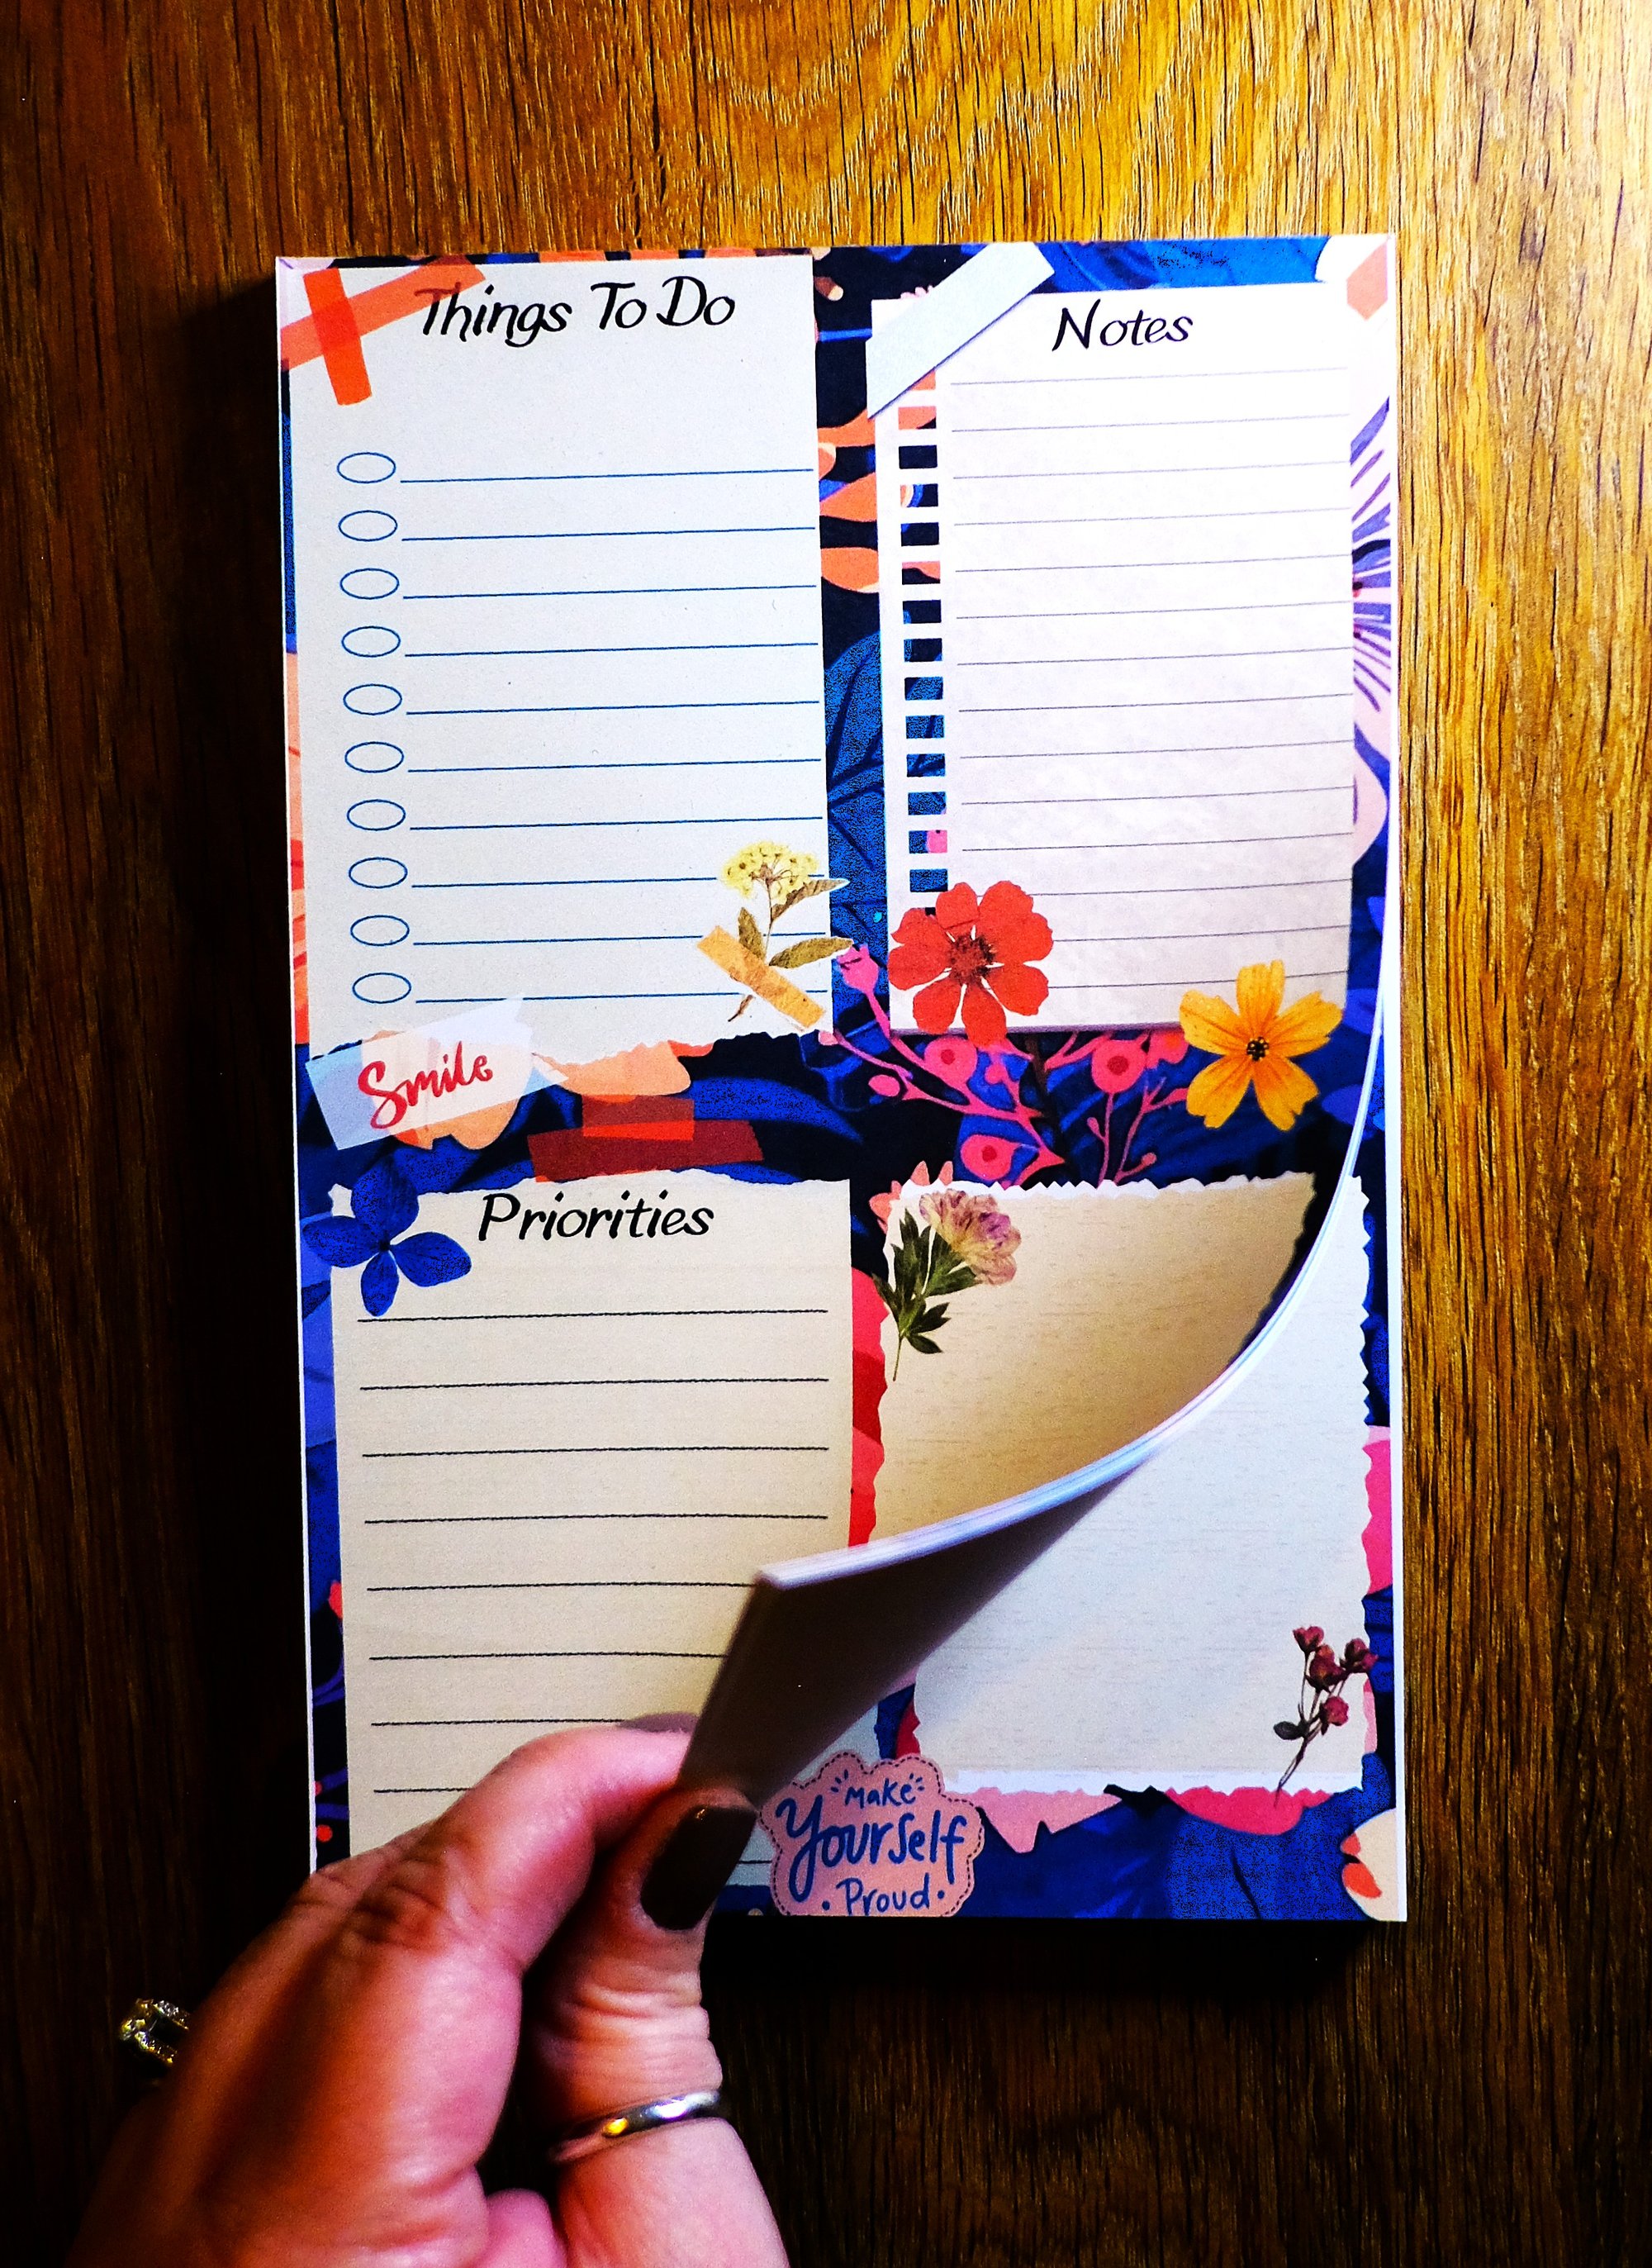 Things To Do
Notes
Smile
Priorities
Make
Yourself
Proud